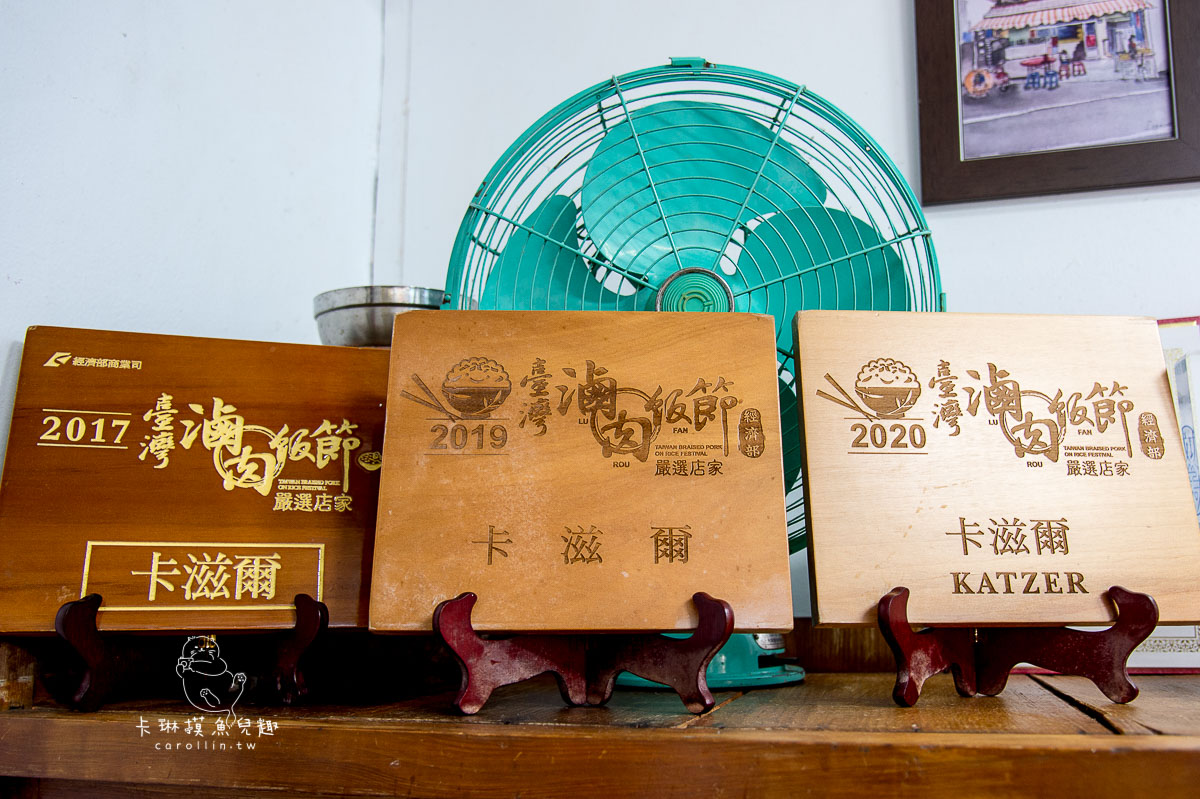 經濟部商業司
2017
臺灣滷肉飯節
TAIWAN BRAISED PORK
ON RICE FESTIVAL
嚴選店家
卡滋爾
2019
臺灣滷肉飯節
LU
ROU
FAN
TAIWAN BRAISED PORK
ON RICE FESTIVAL
嚴選店家
經濟部
卡滋爾
2020
臺灣滷肉飯節
LU
ROU
FAN
TAIWAN BRAISED PORK
ON RICE FESTIVAL
嚴選店家
經濟部
卡滋爾
KATZER
卡琳摸魚兒趣
carollin.tw